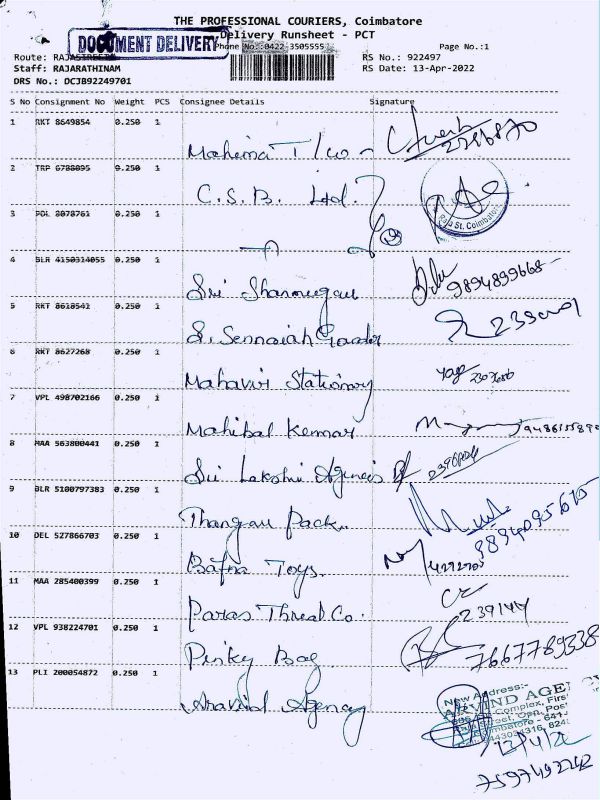 THE PROFESSIONAL COURIERS, Coimbatore
Delivery Runsheet - PCT
DOCUMENT DELIVERY
Phone No.:0422-3505555
Page No.:1
Route: RAJASTREET
RS No.: 922497
Staff: RAJARATHINAM
RS Date: 13-Apr-2022
DRS No.: DCJB92249701
S No Consignment No Weight PCS Consignee Details Signature
1 RKT 8649854 0.250 1
Mahima T/co
2 TRP 6788095 0.250 1
C.S.B. Ltd.
Raja St. Coimbatore
3 POL 8078761 0.250 1
4 BLR 4150314055 0.250 1
Sri Shanmugam 9894899668
5 RKT 8618541 0.250 1
S. Sennaiah Gowder
6 RKT 8627268 0.250 1
Mahavir Stationary
7 VPL 498702166 0.250 1
Mahipal Kumar
8 MAA 563800441 0.250 1
Sri Lakshmi Agencies
9 BLR 5100797383 0.250 1
Thangam Pack 9894095675
10 DEL 527866703 0.250 1
Bafna Toys.
11 MAA 285400399 0.250 1
Paras Thread Co.
12 VPL 938224701 0.250 1
Pinky Bag 7667789338
13 PLI 200054872 0.250 1
Aravind Agency
New Address:-
ARVIND AGE
Complex, First
Street, Opp. Post
Coimbatore - 641
13/4/22
7597492242